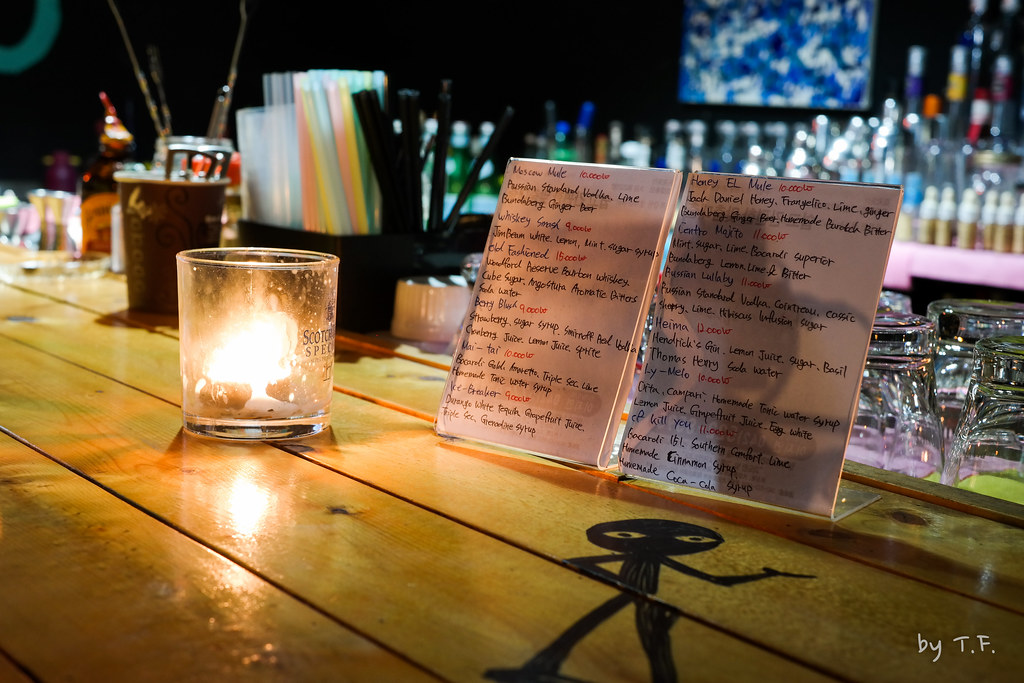 Moscow Mule 10.000₩
Russian Standard Vodka, Lime
Bundaberg Ginger Beer
Whiskey Smash 9.000₩
JimBeam White, Lemon, Mint, sugar syrup
old Fashioned 15.000₩
Woodford Reserve Bourbon whiskey,
Cube Sugar, Angostura Aromatic Bitters
Soda water
Berry Blush 9.000₩
Strawberry, sugar syrup, Smirnoff Red Vodka
Cranberry Juice, Lemon Juice, sprite
Mai-tai 10.000₩
Bacardi Gold, Amaretto, Triple Sec, Lime
Homemade Tonic water syrup
Ice-Breaker 9.000₩
Durango White tequila, Grapefruit Juice,
Triple Sec, Grenadine syrup
Honey EL Mule 10.000₩
Jack Daniel Honey, Frangelico, Lime, ginger
Bundaberg Ginger Beer, Homemade Burdock Bitter
Centro Mojito 11.000₩
Mint, sugar, Lime, Bacardi superior
Bundaberg Lemon, Lime & Bitter
Russian Lullaby 11.000₩
Russian Standard Vodka, Cointreau, cassic
Lime, Hibiscus Infusion sugar
Heima 12.000₩
Hendrick's Gin, Lemon Juice, sugar, Basil
Thomas Henry Soda water
Ly-Melo 10.000₩
Campari, Homemade Tonic water syrup
Lemon Juice, Grapefruit Juice, Egg white
kill you 11.000₩
Bacardi 151, Southern Comfort, Lime,
Homemade Cinnamon Syrup
Homemade Coca-Cola syrup
SCOTCH
SPE
by T.F.